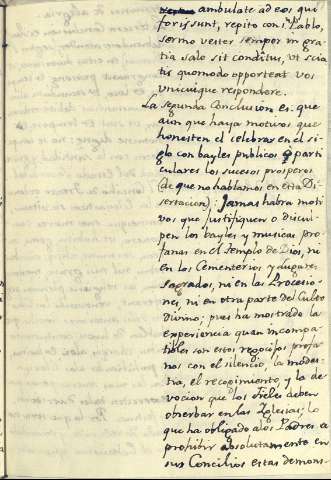 ambulate ad eos qui
foris sunt, repito con Sn. Pablo,
sermo vester semper in gra-
tia salo sit conditus, ut scia
tis quomodo opporteat vos
unicuique respondere.
La segunda Conclusion es: que
aun que haya motivos que
honesten el celebrar en el si-
glo con bayles publicos o parti
culares los sucesos prosperos
(de que no hablamos en esta Di-
sertacion): Jamas habra moti
vos que justifiquen o discul-
pen los bayles y musicas pro-
fanas en el Templo de Dios, ni
en los Cementerios y Lugares
sagrados, ni en las Procesio-
nes, ni en otra parte del Culto
Divino; pues ha mostrado la
experiencia quan incompa-
tibles son estos regocijos profa
nos con el silencio, la modes-
tia, el recogimiento, y la de-
vocion que los fieles deben
observar en las Iglesias; lo
que ha obligado a los Padres a
prohibir absolutamente en
sus Concilios estas demons-